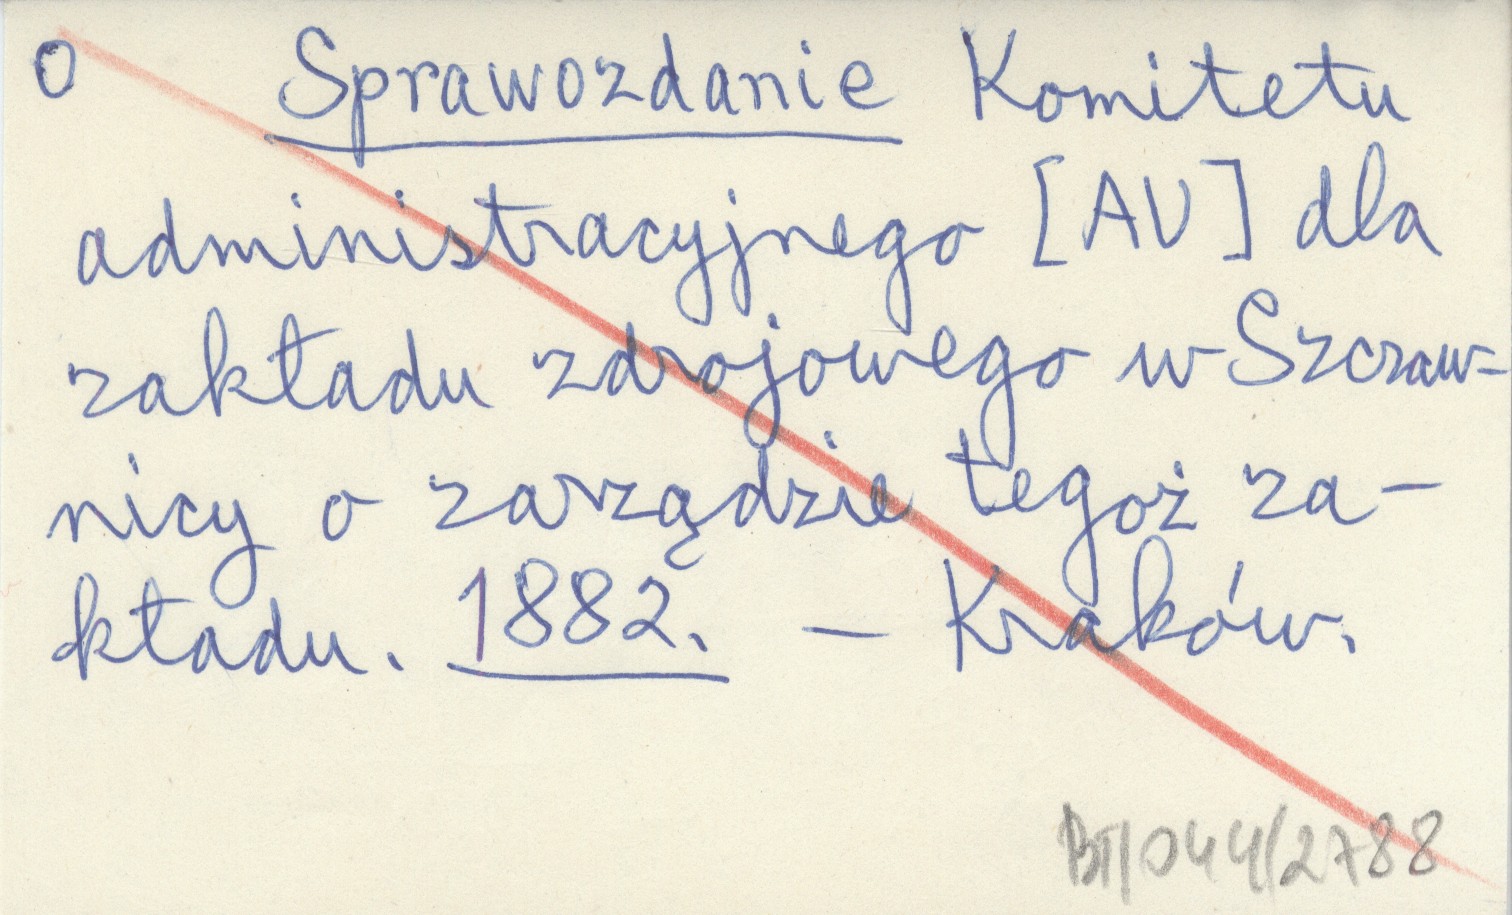 o Sprawozdanie Komitetu
administracyjnego [AU] dla
zakładu zdrojowego w Szczaw-
nicy o zarządzie tegoż za-
kładu. 1882. – Kraków.
BT/044/2788